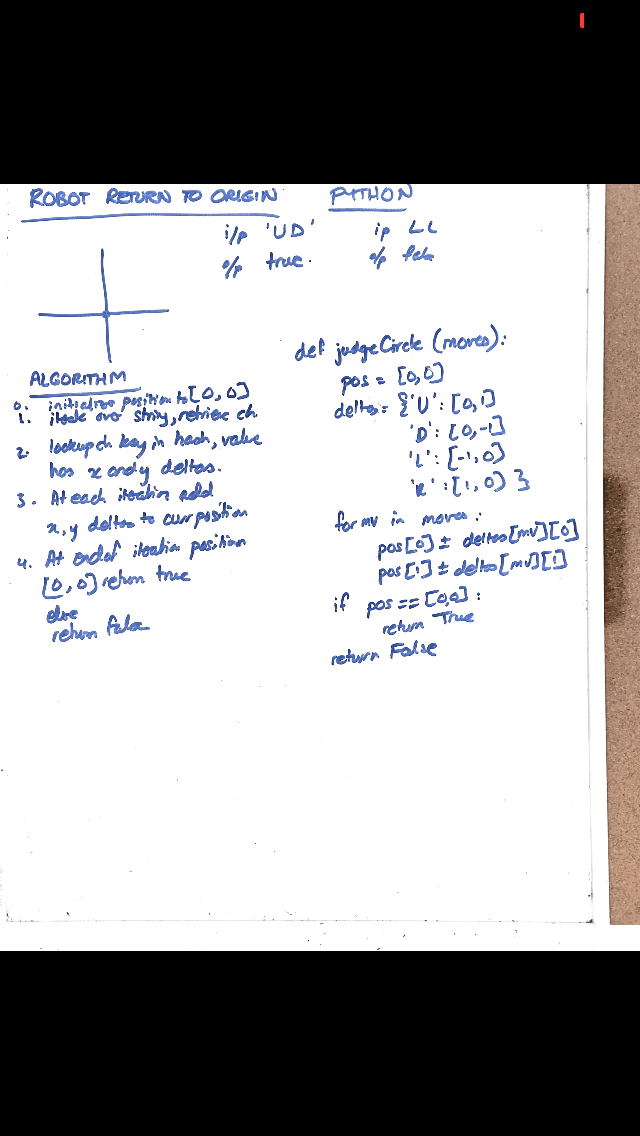 ROBOT RETURN TO ORIGIN
i/p 'UD'
o/p true.
ALGORITHM
0. initialize position to [0, 0]
1. iterate over string, retrieve ch
2. lookup ch key in hash, value
has x and y deltas.
3. At each iteration add
x, y deltas to curr position
4. At end of iteration position
[0, 0] return true
else
return false
PYTHON
ip LL
o/p false
def judgeCircle (moves):
pos = [0,0]
deltas = {'U': [0,1]
'D': [0,-1]
'L': [-1,0)
'R': [1,0) }
for mv in moves:
pos[0] ± deltas[mv][0]
pos[1] ± deltas[mv][1]
if pos == [0,0]:
return True
return False